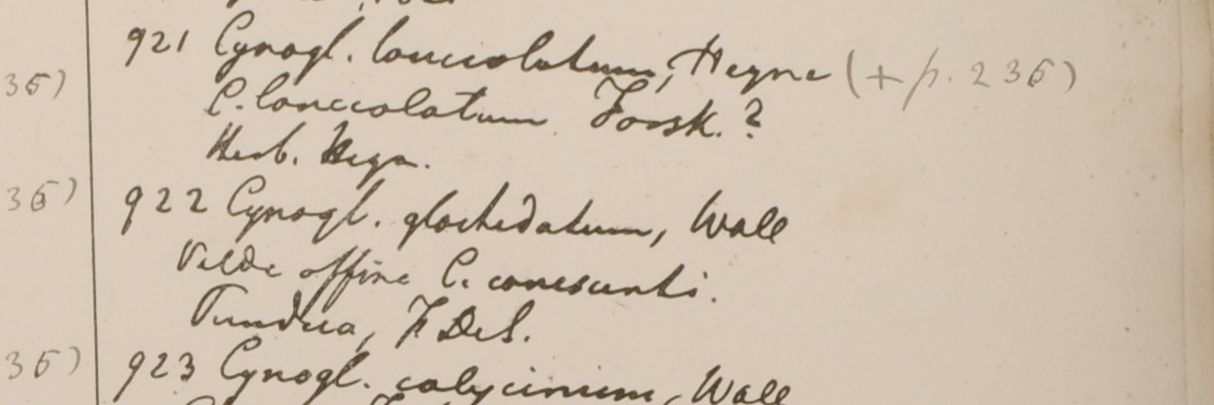 921 Cynogl. lanceolatum, Heyne (+ p. 236)
36)
C. lanceolatum Forsk. ?
Herb. Heyn.
36)
922 Cynogl. glochidatum, Wall
Valde affine C. canescenti.
Tundua, F. De S.
36)
923 Cynogl. calycinum, Wall